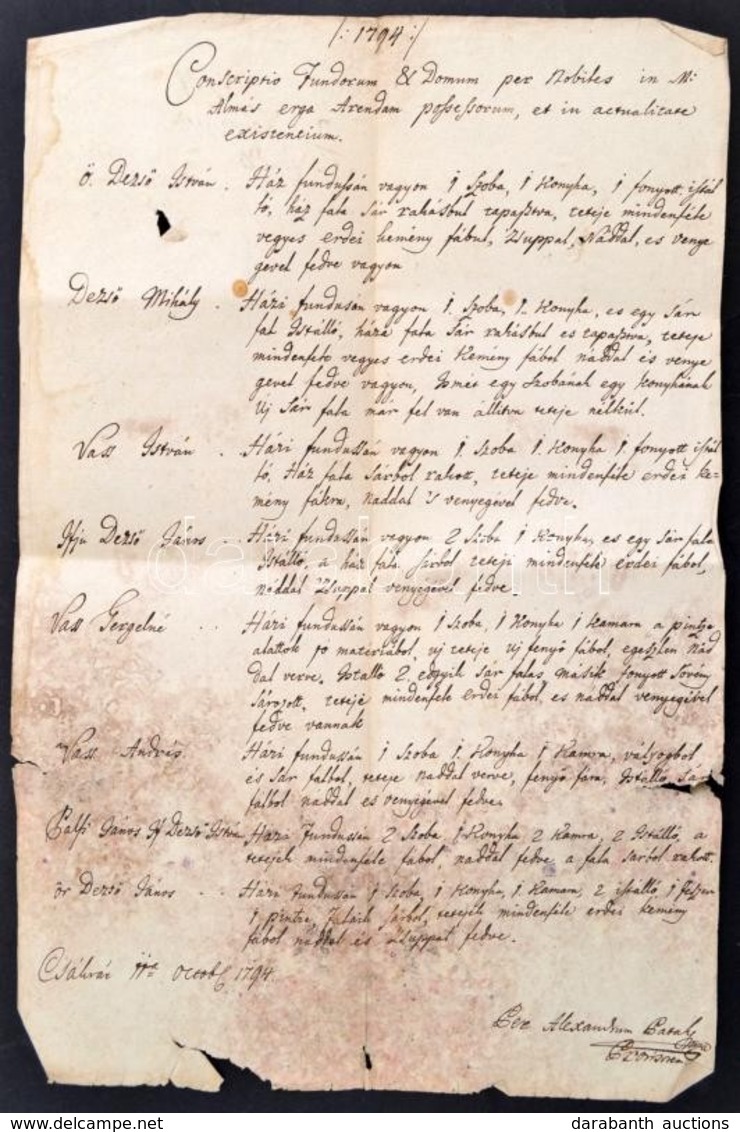 /: 1794 :/
Conscriptio Fundorum & Domum per Nobiles in M:
Almás erga Arendam possessorum, et in actualitate
existentium.
Ö. Dezső István . Ház fundussán vagyon 1 Szoba, 1 Konyha, 1 fonyott istál
ló, ház fala Sár rakásbul tapasztva, teteje mindenféle
vegyes erdei kemény fábul, Zsuppal, Náddal, es venye
gével fedve vagyon
Dezső Mihály . Házi fundusán vagyon 1. Szoba, 1. Konyha, es egy Sár
fal Istálló, háza fala Sár rakásbul es tapasztva, teteje
mindenféle vegyes erdei Kemény fábol náddal és venye
gevel fedve vagyon, Ismét egy Szobának egy konyhának
Új Sár fala már fel van állitva teteje nélkül.
Vass István . Házi fundussán vagyon 1. Szoba 1. Konyha 1. fonyott istál
ló, Ház fala Sárbol rakott, teteje mindenféle erdei ke-
mény fákra, náddal 's venyegével fedve.
Ifju Dezső János . . Házi fundussán vagyon 2 Szoba 1 Konyha, es egy Sár fala
Istálló, a ház fala Sárbol teteji mindenféle erdei fábol,
náddal Zsuppal venyegével fedve.
Vass Gergelné . . Házi fundussán vagyon 1 Szoba, 1 Konyha 1 Kamara a pintze
alattok jo matériábol, uj teteje új fenyő fábol, egeszlen Nád
dal verve. Istalló 2. egyik Sár falas másik fonyott Sövény
Sározott, teteje mindenféle erdei fábol, es náddal venyegével
fedve vannak
Vass András Házi fundussán 1 Szoba 1. Konyha 1 Kamra, vályogbol
és Sár falbol, teteje náddal verve, fenyő fára, Istálló Sár
falbol náddal es venyegével fedve.
Palfi János If Dezső István Házi Fundussán 2 Szoba 1 Konyha 2 Kamra, 2 Istálló, a
tetejek mindenféle fábol, náddal fedve, a fala Sárbol rakott.
ör Dezső János . . Házi fundussán 1 Szoba, 1 Konyha, 1. Kamara, 2 istálló 1
1 pintze, falaik Sárbol, tetejek mindenféle erdei kemény
fábol náddal és Zsuppal fedve.
Csákvár 11a Octob 1794
Per Alexandrum
darabanth
darabanth auctions